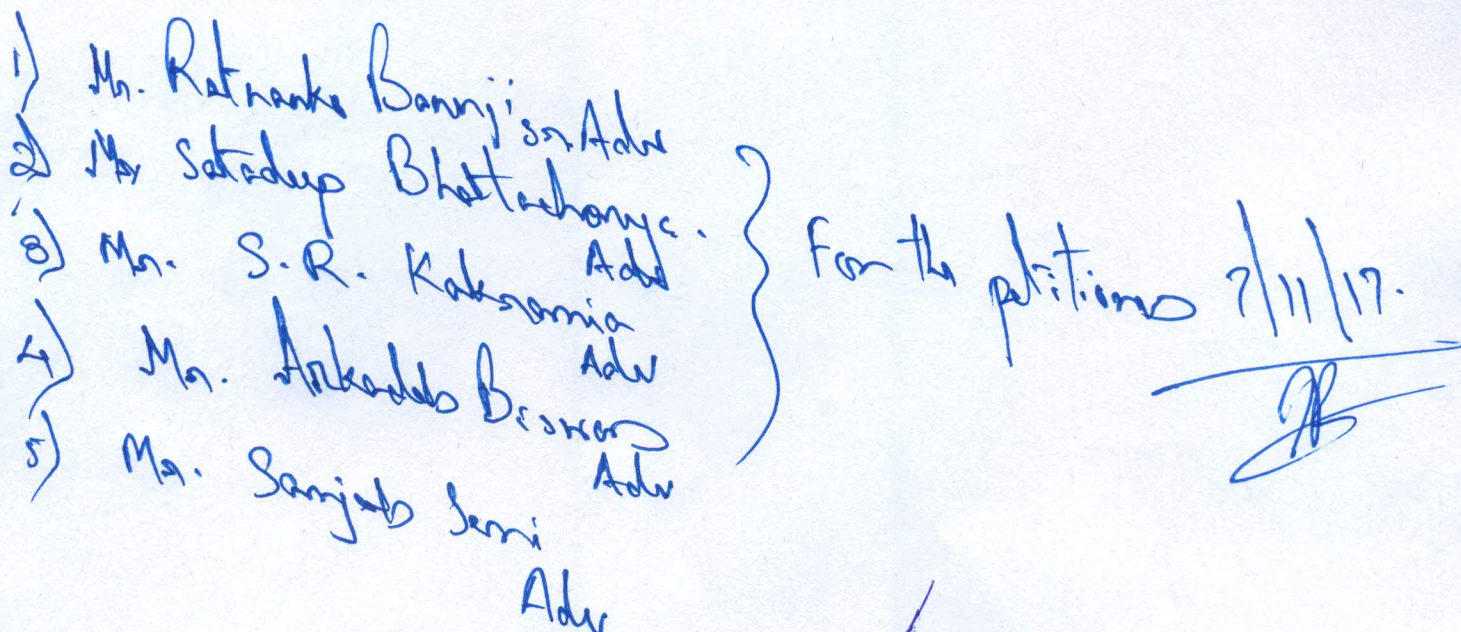 1) Mr. Ratnanko Banerji Sr. Adv
2) Mr Satadeep Bhattacharya.
Adv
3) Mr. S.R. Kakrania
Adv
4) Mr. Arkadeb Biswas
Adv
5) Mr. Sanjib
Adv
For the petitioners 7/11/17.